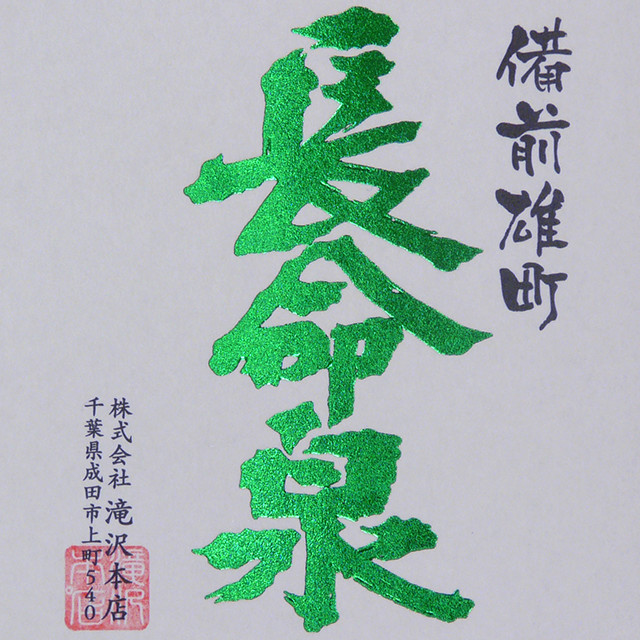 備前雄町
長命泉
株式会社 滝沢本店
千葉県成田市上町540